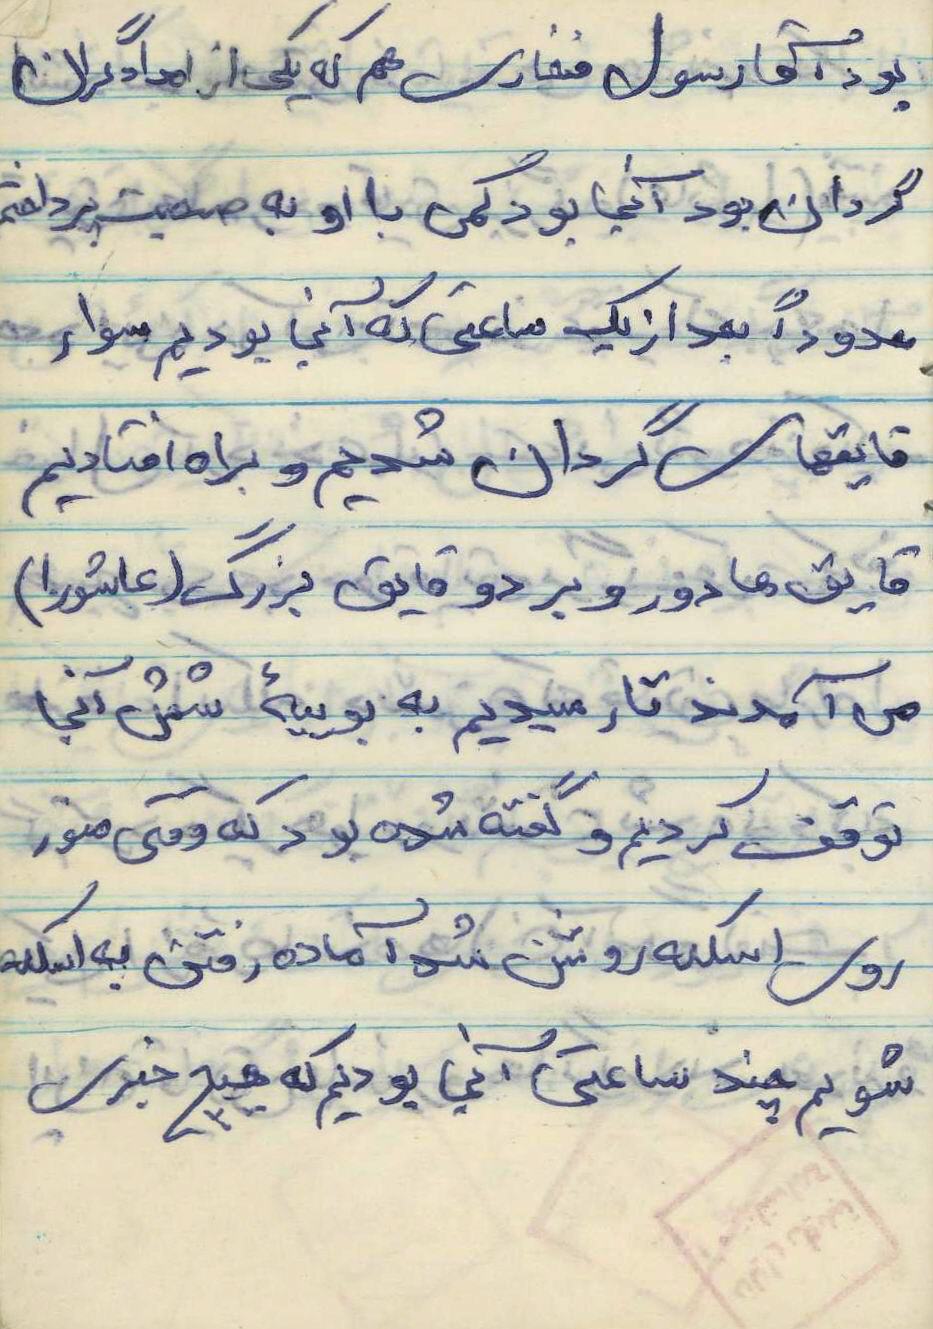 بود آقا رسول غفاری هم که یکی از امدادگران
گردان بود آنجا بود کمی با او به صحبت پرداختم
حدوداً بعد از یک ساعتی که آنجا بودیم سوار
قایقهای گردان شدیم و براه افتادیم
قایق ها دور و بر دو قایق بزرگ (عاشورا)
می آمدند تا رسیدیم به بوییهٔ شش آنجا
توقف کردیم و گفته شده بود که وقتی منور
روی اسکله روشن شد آماده رفتن به اسکله
شویم چند ساعتی آنجا بودیم که هیچ خبری